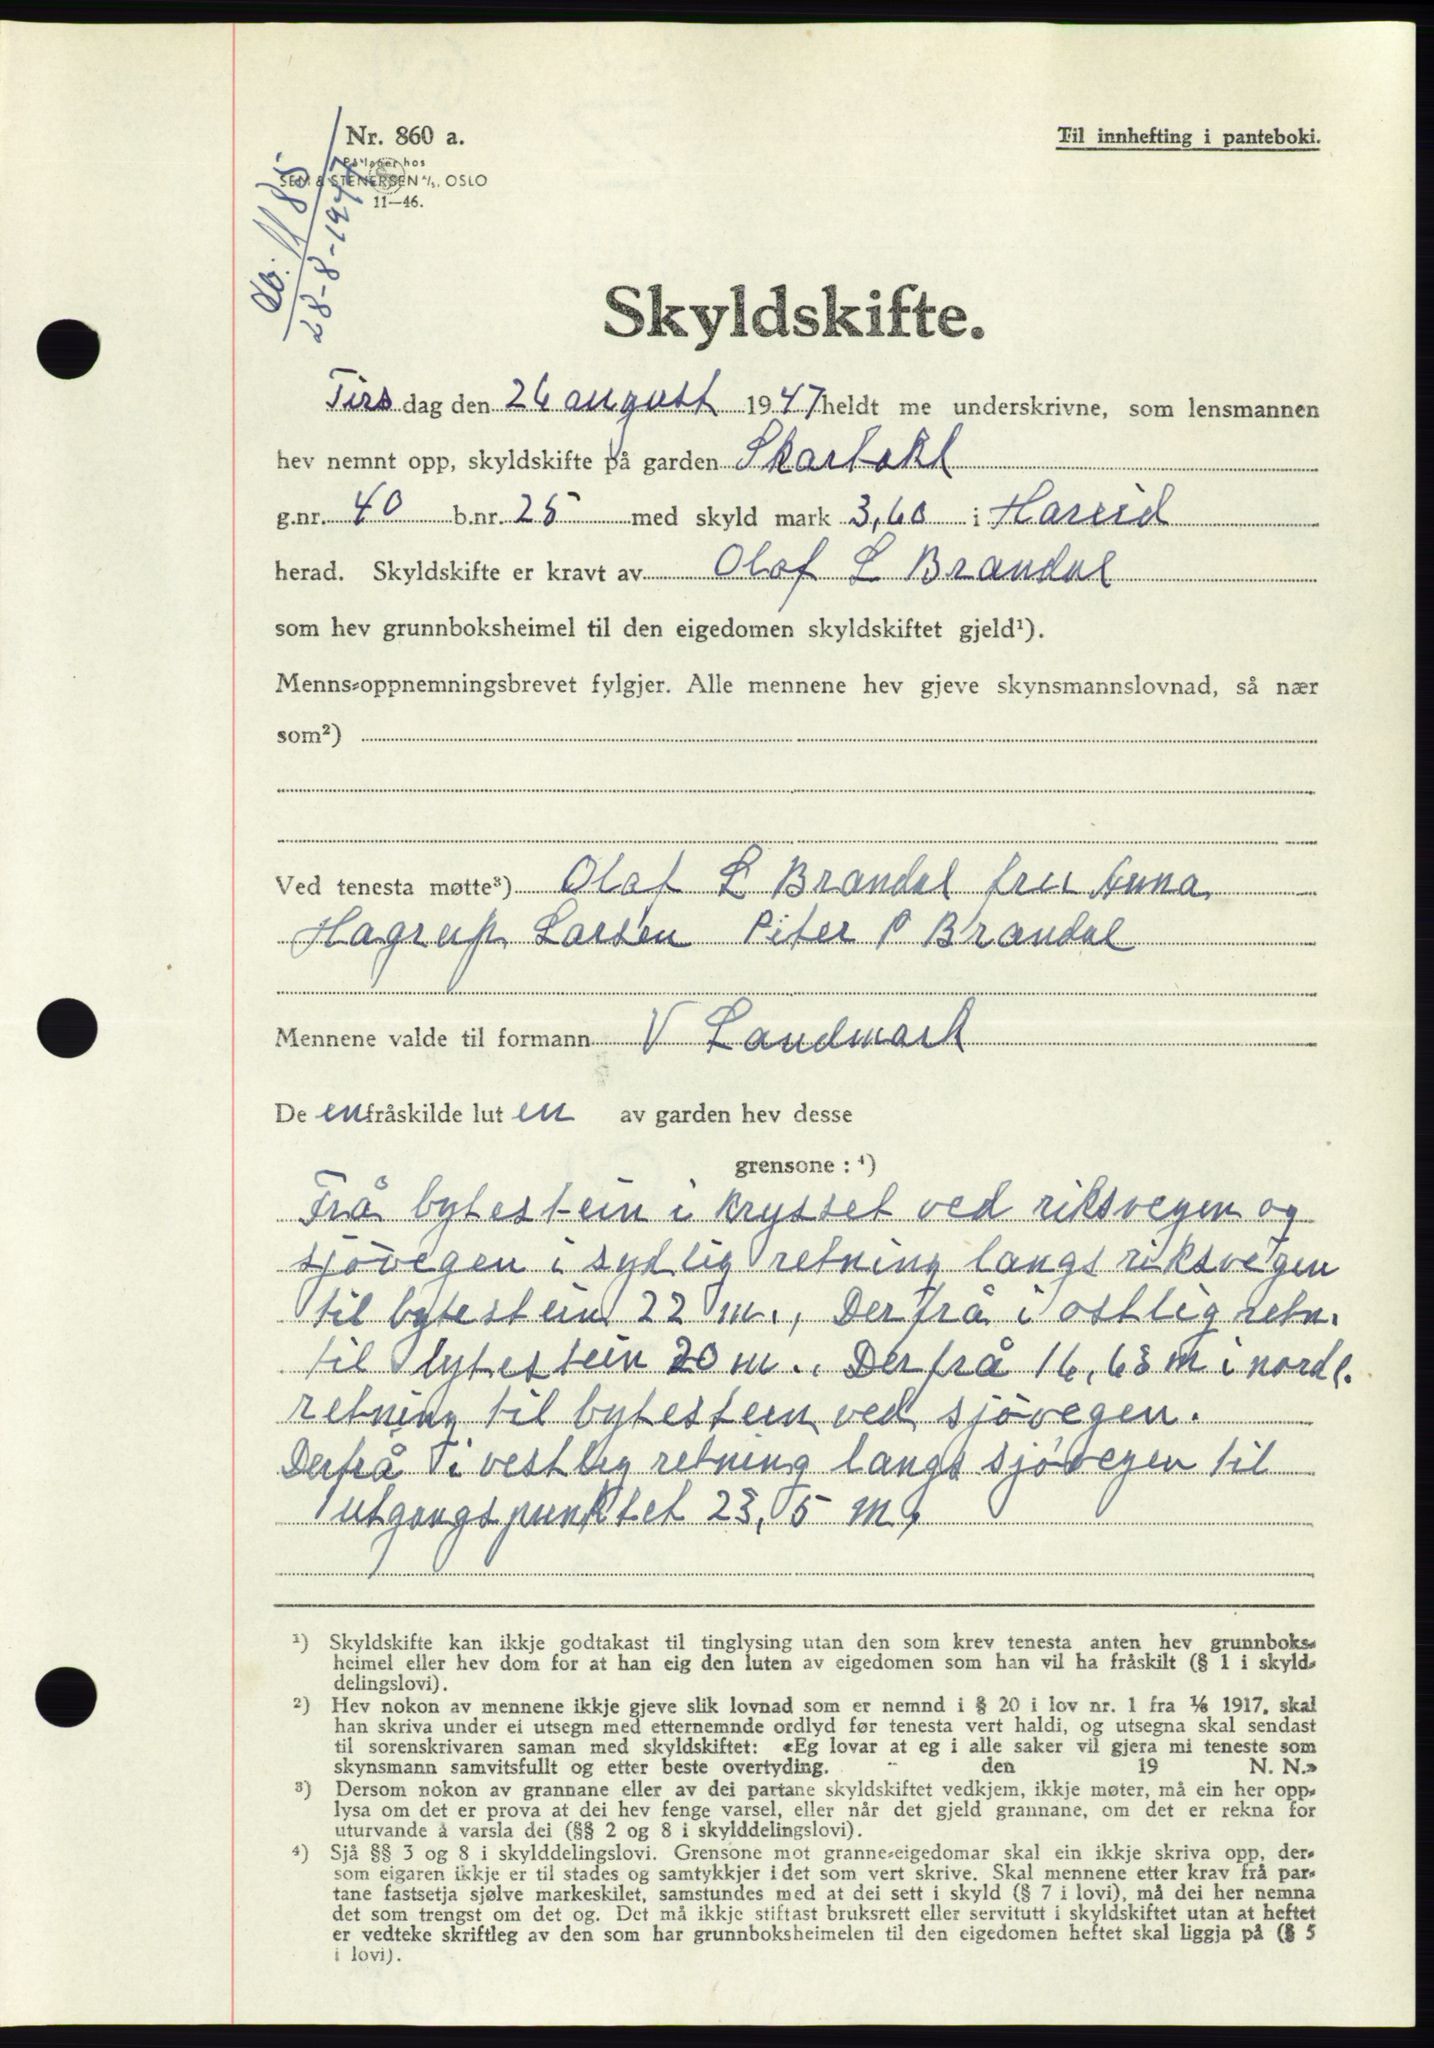 Nr. 860 a.
På lager hos
SEM & STENERSEN A/S, OSLO
11—46.
Til innhefting i panteboki.
1185
28-8-1947
Skyldskifte.
Tirs dag den 26 august 1947 heldt me underskrivne, som lensmannen
hev nemnt opp, skyldskifte på garden
g.nr. 40 b.nr. 25 med skyld mark 3,60 i Hareid
herad. Skyldskifte er kravt av Olaf L Brandal
som hev grunnboksheimel til den eigedomen skyldskiftet gjeld¹).
Menns-oppnemningsbrevet fylgjer. Alle mennene hev gjeve skynsmannslovnad, så nær
som²)
Ved tenesta møtte³) Olaf L Brandal fru Anna
Hagrup Larsen Peter P Brandal
Mennene valde til formann V Landmark
De en fråskilde lut en av garden hev desse
grensone : ⁴)
Frå bytestein i krysset ved riksvegen og
sjøvegen i sydlig retning langs riksvegen
til bytestein 22 m., Derfrå i ostlig retn.
til bytestein 20 m.. Derfrå 16,63 m i nordl.
retning til bytestein ved sjøvegen.
Derfrå i vestlig retning langs sjøvegen til
utgangspunktet 23,5 m,
¹) Skyldskifte kan ikkje godtakast til tinglysing utan den som krev tenesta anten hev grunnboks-
heimel eller hev dom for at han eig den luten av eigedomen som han vil ha fråskilt (§ 1 i skyld-
delingslovi).
²) Hev nokon av mennene ikkje gjeve slik lovnad som er nemnd i § 20 i lov nr. 1 fra 1/6 1917, skal
han skriva under ei utsegn med etternemnde ordlyd før tenesta vert haldi, og utsegna skal sendast
til sorenskrivaren saman med skyldskiftet: «Eg lovar at eg i alle saker vil gjera mi teneste som
skynsmann samvitsfullt og etter beste overtyding. den 19 N. N.»
³) Dersom nokon av grannane eller av dei partane skyldskiftet vedkjem, ikkje møter, må ein her opp-
lysa om det er prova at dei hev fenge varsel, eller når det gjeld grannane, om det er rekna for
uturvande å varsla dei (§§ 2 og 8 i skylddelingslovi).
⁴) Sjå §§ 3 og 8 i skylddelingslovi. Grensone mot granne-eigedomar skal ein ikkje skriva opp, der-
som eigaren ikkje er til stades og samtykkjer i det som vert skrive. Skal mennene etter krav frå par-
tane fastsetja sjølve markeskilet, samstundes med at dei sett i skyld (§ 7 i lovi), må dei her nemna
det som trengst om det og. Det må ikkje stiftast bruksrett eller servitutt i skyldskiftet utan at heftet
er vedteke skriftleg av den som har grunnboksheimelen til den eigedomen heftet skal liggja på (§ 5
i lovi).